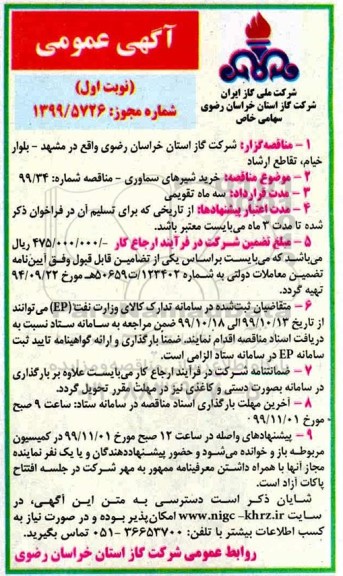 آگهی عمومی
(نوبت اول)
شماره مجوز: ۱۳۹۹/۵۷۲۶
شرکت ملی گاز ایران
شرکت گاز استان خراسان رضوی
سهامی خاص
۱ – مناقصه‌گزار: شرکت گاز استان خراسان رضوی واقع در مشهد - بلوار
خیام، تقاطع ارشاد
۲ – موضوع مناقصه: خرید شیرهای سماوری – مناقصه شماره: ۹۹/۳۴
۳ – مدت قرارداد: سه ماه تقویمی
۴ – مدت اعتبار پیشنهادها: از تاریخی که برای تسلیم آن در فراخوان ذکر
شده تا مدت ۳ ماه می‌بایست معتبر باشد.
۵ – مبلغ تضمین شرکت در فرآیند ارجاع کار -/۴۷۵/۰۰۰/۰۰۰ ریال
می‌باشد که می‌بایست براساس یکی از تضامین قابل قبول وفق آیین‌نامه
تضمین معاملات دولتی به شماره ۱۲۳۴۰۲/ت۵۰۶۵۹هـ مورخ ۹۴/۰۹/۲۲
تهیه گردد.
۶ – متقاضیان ثبت‌شده در سامانه تدارک کالای وزارت نفت (EP) می‌توانند
از تاریخ ۹۹/۱۰/۱۳ الی ۹۹/۱۰/۱۸ ضمن مراجعه به سامانه ستاد نسبت به
دریافت اسناد مناقصه اقدام نمایند. ضمنا بارگذاری و ارائه گواهینامه تایید ثبت
سامانه EP در سامانه ستاد الزامی است.
۷ – ضمانتنامه شرکت در فرآیند ارجاع کار می‌بایست علاوه بر بارگذاری
در سامانه بصورت دستی و کاغذی نیز در مهلت مقرر تحویل گردد.
۸ – آخرین مهلت بارگذاری اسناد مناقصه در سامانه ستاد: ساعت ۹ صبح
مورخ ۹۹/۱۱/۰۱
۹ – پیشنهادهای واصله در ساعت ۱۲ صبح مورخ ۹۹/۱۱/۰۱ در کمیسیون
مربوطه باز و خوانده می‌شود و حضور پیشنهاددهندگان و یا یک نفر نماینده
مجاز آنها با همراه داشتن معرفینامه ممهور به مهر شرکت در جلسه افتتاح
پاکات آزاد است.
شایان ذکر است دسترسی به متن این آگهی، در
سایت www.nigc-khrz.ir امکان‌پذیر بوده و در صورت نیاز به
کسب اطلاعات بیشتر با تلفن: ۳۶۶۵۳۷۰۰-۰۵۱ تماس بگیرید.
روابط عمومی شرکت گاز استان خراسان رضوی